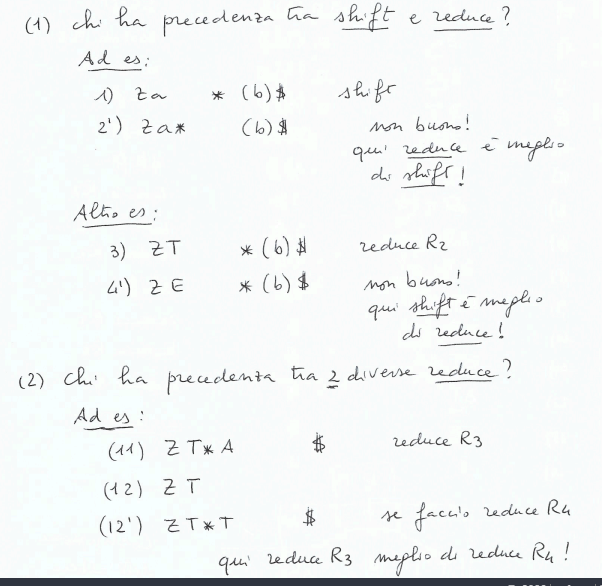 (1) chi ha precedenza tra shift e reduce?
Ad es:
1) Za * (b)$ shift
2') Za* (b)$ non buono!
qui reduce è meglio
di shift!
Altro es:
3) ZT *(b)$ reduce R2
4') ZE *(b)$ non buono!
qui shift è meglio
di reduce!
(2) Chi ha precedenza tra 2 diverse reduce?
Ad es:
(11) ZT*A $ reduce R3
(12) ZT
(12') ZT*T $ se faccio reduce R4
qui reduce R3 meglio di reduce R4!